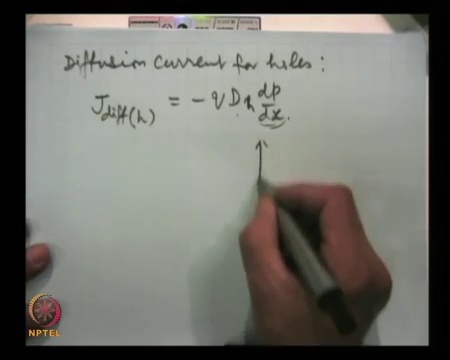 Diffusion current for holes:
J_diff(h) = - q D_h dp/dx.
NPTEL